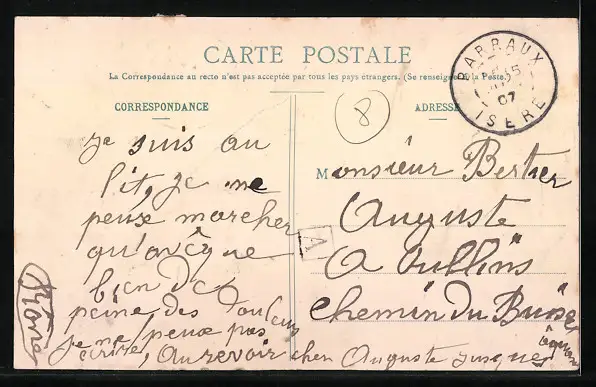 CARTE POSTALE
La Correspondance au recto n'est pas acceptée par tous les pays étrangers. (Se renseigner à la Poste.)
CORRESPONDANCE
ADRESSE
8
BARRAUX
07
ISERE
je suis au
lit, je ne
peux marcher
qu'avêque
bien des
peine, des douleurs
je ne peux pas
écrire, au revoir cher Auguste jusque
A
Monsieur Bertier
Auguste
A Oullins
chemin du Buisset
Rhône